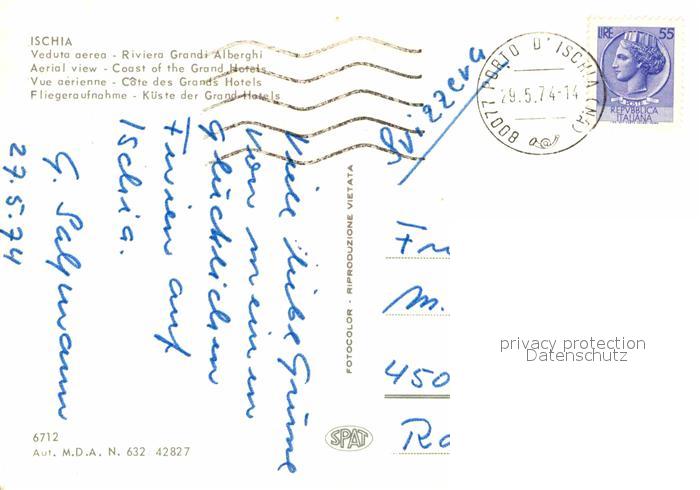 ISCHIA
Veduta aerea - Riviera Grandi Alberghi
Aerial view - Coast of the Grand Hotels
Vue aérienne - Côte des Grands Hotels
Fliegeraufnahme - Küste der Grand Hotels
Viele liebe Grüsse
von meinen
glücklichen
Ferien auf
Ischia.
G. Salzmann
27.5.74
6712
Aut. M.D.A. N. 632 42827
FOTOCOLOR - RIPRODUZIONE VIETATA
SPAT
Svizzera
80077 PORTO D'ISCHIA (NA)
29.5.74-14
LIRE 55
POSTE
REPVBBLICA
ITALIANA
Fr
M.
450
privacy protection
Datenschutz